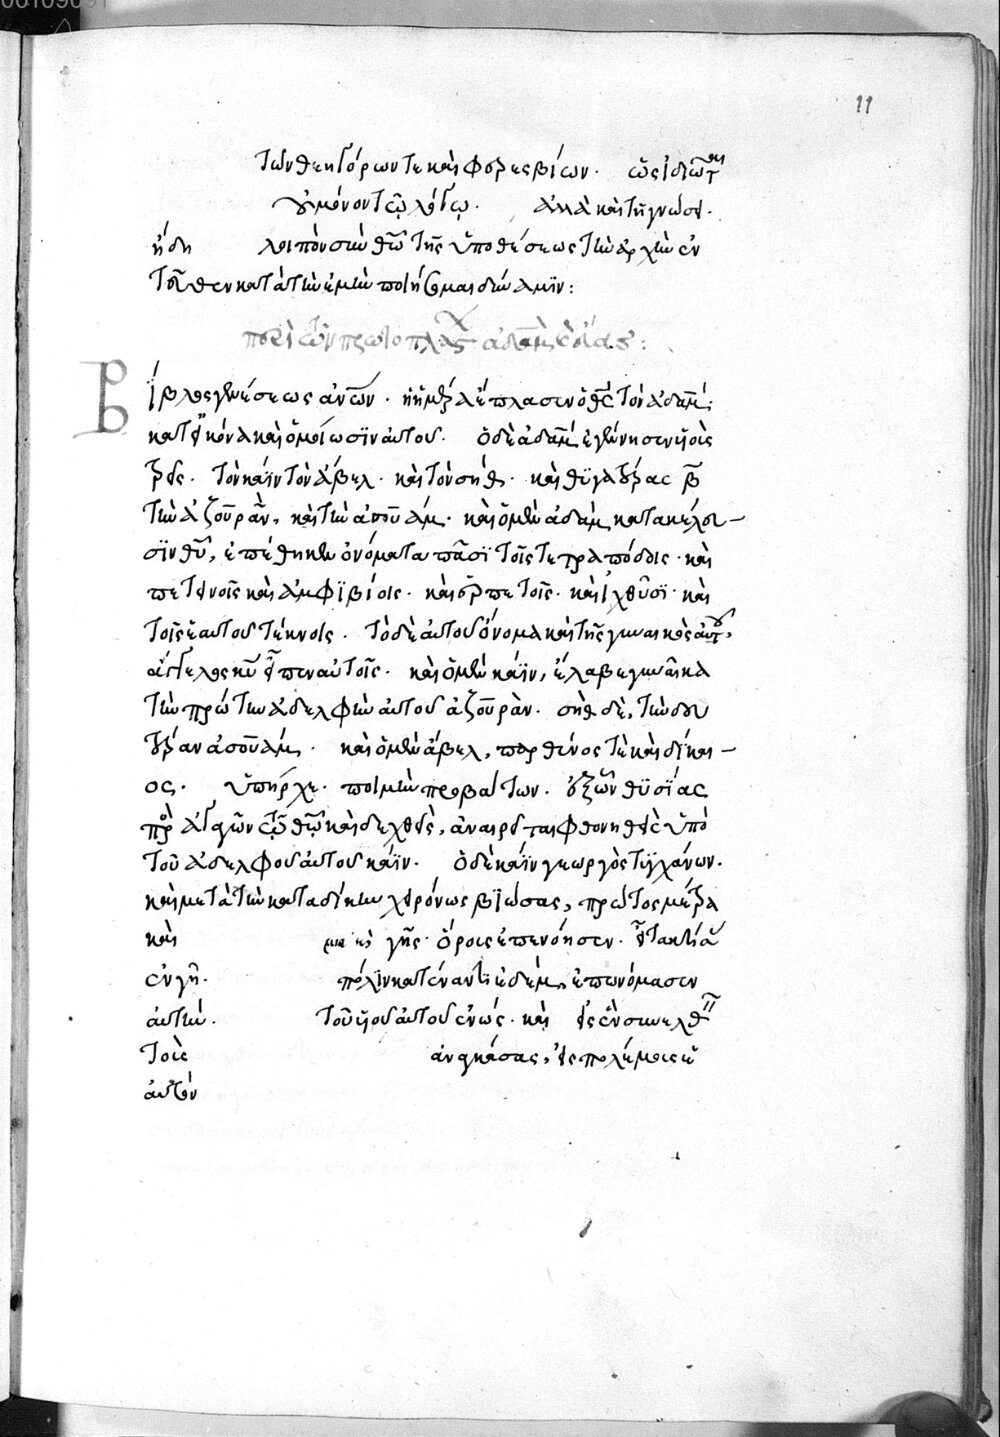 11
τῶν θεηγόρων τε καὶ φορεςβίων. ὡς ἰδιώτ
οὐ μόνον τῷ λόγῳ. ἀλλὰ καὶ τῇ γνώσει.
ἤδη λοιπὸν σὺν θῶ τῆς ὑποθέσεως τὴν ἀρχὴν ἐν
τεῦθεν κατὰ τὴν ἐμὴν ποιήσομαι δύναμιν:
περὶ τῶν πρωτοπλάστ ἀδὰμ κ εὔας:
Βίβλος γενέσεως ἀνων. ἡ ἡμέρα ἔπλασεν ὁ θς τὸν ἀδάμ;
κατ εἰκόνα καὶ ὁμοίωσιν αὐτοῦ. ὁ δὲ ἀδὰμ ἐγέννησεν υἱοὺς
τρεῖς. τὸν κάϊν τὸν ἄβελ. καὶ τὸν σήθ. καὶ θυγατέρας β
τὴν ἀζουρὰν, καὶ τὴν ἀσουάμ. καὶ ὁ μὲν ἀδὰμ κατὰ κέλευ-
σιν θυ, ἐπέθηκεν ὀνόματα πᾶσι τοῖς τετραπόδοις. καὶ
πετεινοῖς καὶ ἀμφιβίοις. καὶ ἑρπετοῖς. καὶ ἰχθύσι. καὶ
τοῖς ἑαυτοῦ τέκνοις. τὸ δὲ αὐτοῦ ὄνομα καὶ τῆς γυναικὸς αὐτοῦ,
ἄγγελος κυ εἶπεν αὐτοῖς. καὶ ὁ μὲν κάϊν, ἔλαβε γυναῖκα
τὴν πρώτην ἀδελφὴν αὐτοῦ ἀζουρὰν. σὴθ δὲ, τὴν δευ
τέραν ἀσουάμ. καὶ ὁ μὲν ἄβελ, παρθένος τὲ καὶ δίκαι-
ος. ὑπῆρχε. ποιμὴν προβάτων. ἐξ ὧν θυσίας
πρὸ ἀγαγὼν τῷ θῶ καὶ δεχθεὶς, ἀναιρεῖται φθονηθεὶς ὑπὸ
τοῦ ἀδελφοῦ αὐτοῦ κάϊν. ὁ δὲ κάϊν γεωργὸς τυγχάνων.
καὶ μετὰ τὴν καταδίκην χειρόνως βιώσας, πρῶτος μέτρα
καὶ γῆς ὅρους ἐπενόησεν.
ἐν γῆ. πόλιν κατέναντι ἐδέμ, ἐπωνόμασεν
αὐτὴν. τοῦ υἱοῦ αὐτοῦ ἐνώς. καὶ εἰς ἓν συνελθ
τοὺς ἀναγκάσας, εἰς πολέμους
αὐτὸν